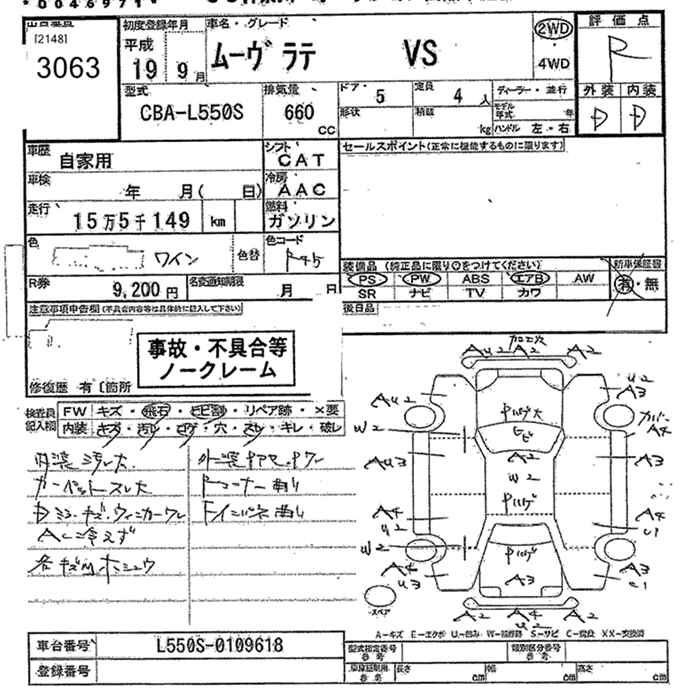 [2148]
3063
初度登録年月
平成
19 9月
車名・グレード
ムーヴ ラテ VS
2WD
4WD
評価点
R
外装 内装
D D
型式
CBA-L550S
排気量
660
CC
ドア・形状
5
定員
4 人
積載
kg
ディーラー・並行
モデル年式 年
ハンドル 左・右
車歴
自家用
シフト
CAT
車検
年 月( 日)
冷房
AAC
走行
15万5千149 km
燃料
ガソリン
色
ワイン
色替
色コード
R45
R券
9,200円
名変通知期限
月 日
セールスポイント(正常に機能するものに限ります)
装備品 (純正品に限り○をつけてください)
PS PW ABS エアB AW
SR ナビ TV カワ
新車保証書
有・無
後日品
注意事項申告欄(不具合内容等は具体的に記入して下さい)
事故・不具合等
ノークレーム
修復歴 有〔箇所
検査員記入欄
FW キズ・飛石・ヒビ割・リペア跡・×要
内装 キズ・汚レ・コゲ・穴・スレ・キレ・破レ
内装汚レ大
カーペットスレ大
Dミラーキズ・ウィンカーワレ
AC冷えず
各キズ凹ホシュウ
ドコーナー曲り
トインパネ曲り
加工大
Au2 A2 A2
u2
A3
Au2
W2
Au3
A4
u2
W2
A4
u3
カバーA4
A3
A4
u1
A3
c1
Gヒビ
A2
W2
Pハゲ
Pハゲ
A3
A2 A4 A2
u2
スペア
A-キズ E-エクボ U-凹み W-補修跡 S-サビ C-腐食 XX-交換済
車台番号
L550S-0109618
登録番号
型式指定番号
参考
類別区分番号
参考
車庫証明用
参考
長さ cm 幅 cm 高さ cm